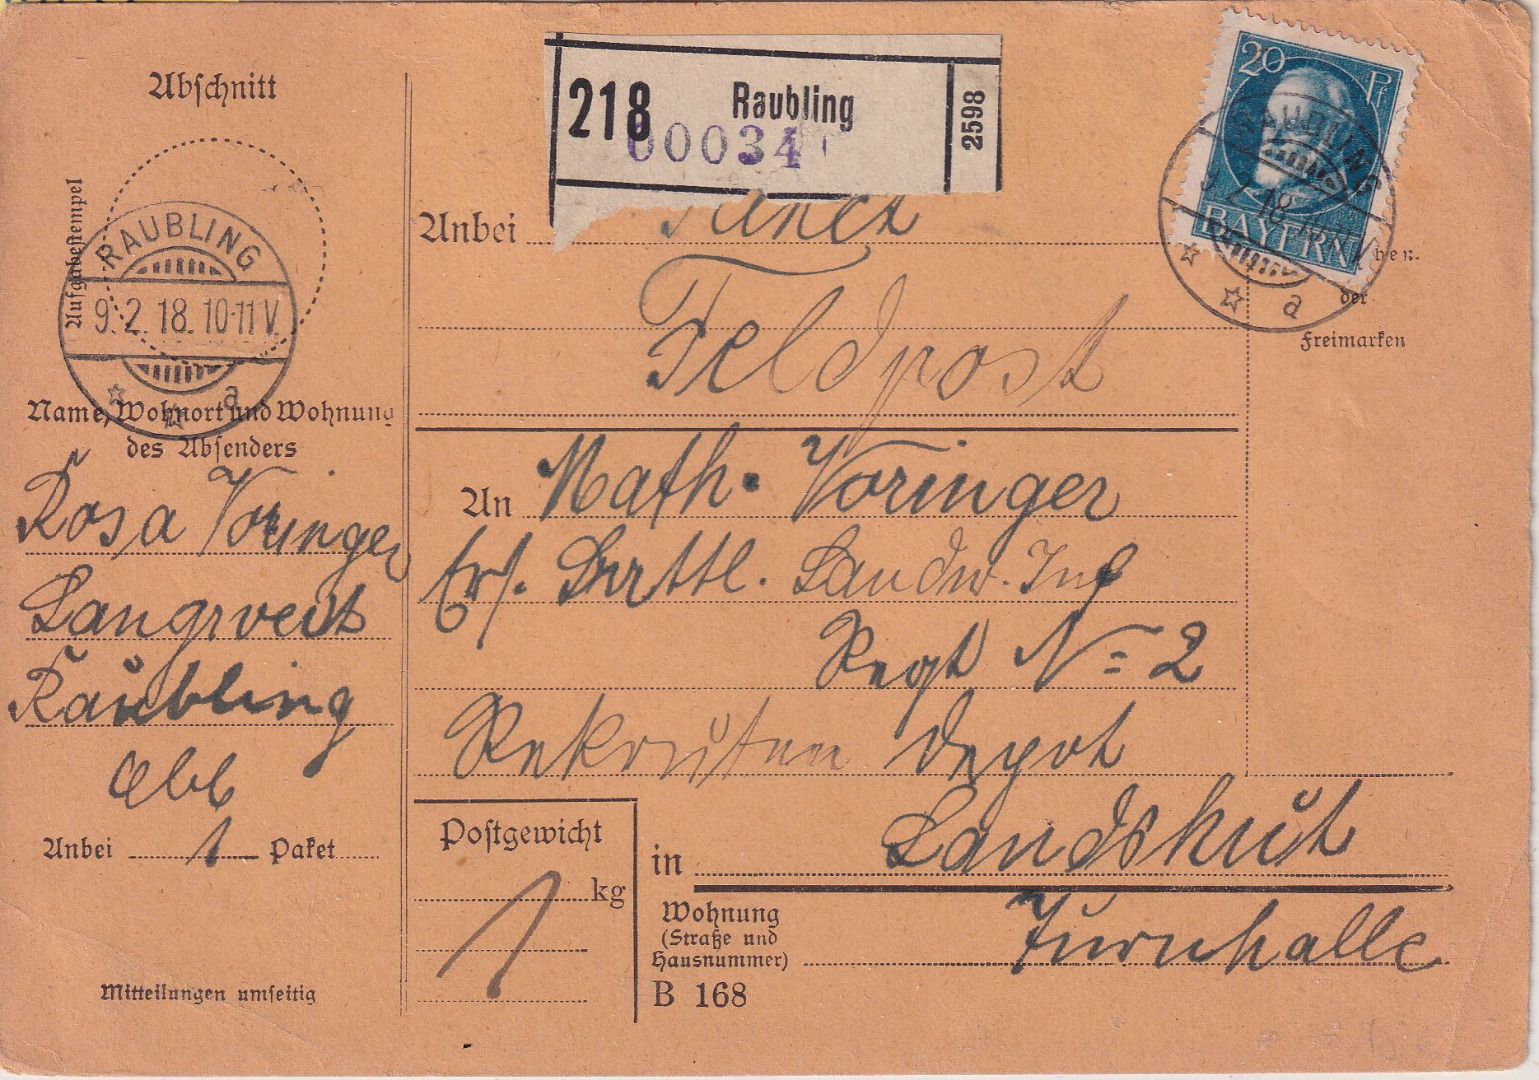 Abschnitt
Aufgabestempel
RAUBLING
9.2.18.10-11V.
a
Name, Wohnort und Wohnung
des Absenders
Rosa Voringer
Raubling
Obb
Anbei 1 Paket
Mitteilungen umseitig
218 Raubling 2598
00034
20 Pf
BAYERN
RAUBLING
a
Anbei Paket
Feldpost
der
Freimarken
An Math. Voringer
Ers. Battl. Landw. Inf
Regt No 2
Rekruten Depot
in Landshut
Wohnung
(Straße und
Hausnummer)
Turnhalle
Postgewicht
1 kg
B 168